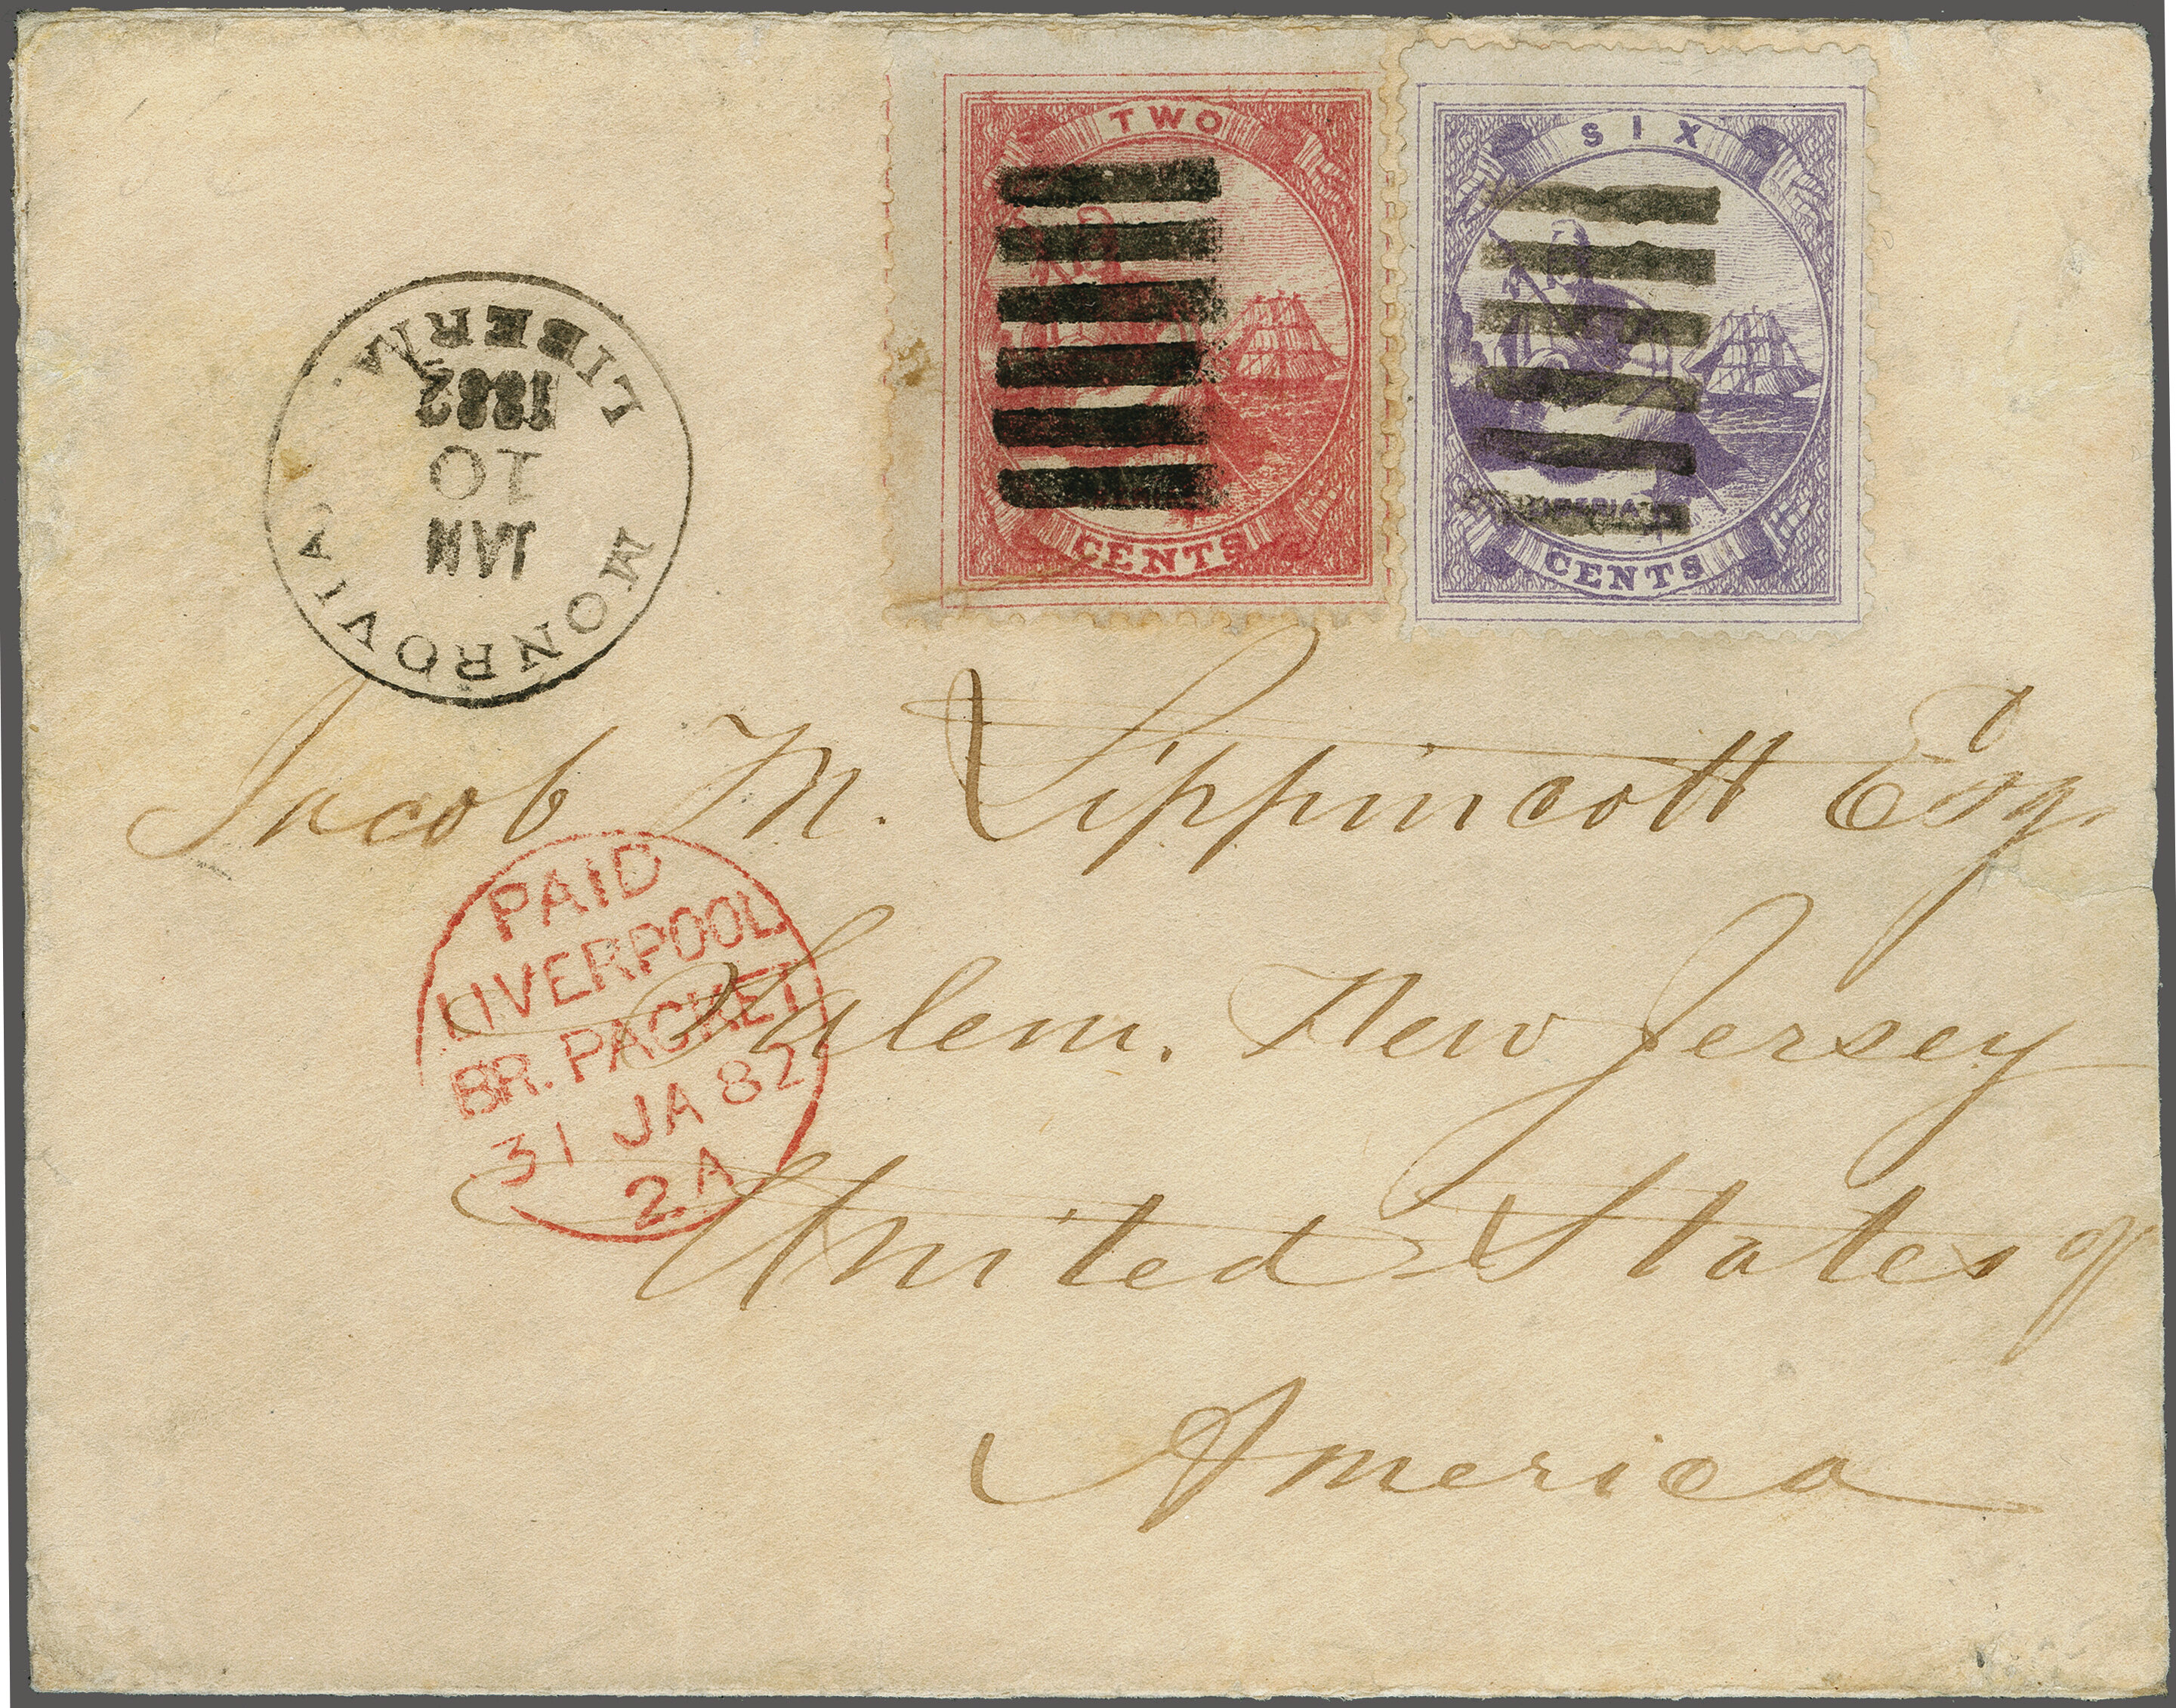 TWO
CENTS
SIX
LIBERIA
CENTS
MONROVIA,
JAN
10
1882
LIBERIA.
Jacob M. Lippincott Esqr
Salem. New Jersey
United States of
America
PAID
LIVERPOOL
BR. PACKET
31 JA 82
2 A